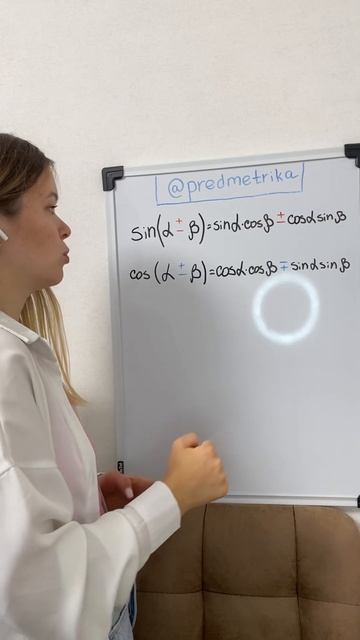 @predmetrika
sin(α ± β)=sinα·cosβ ± cosαsinβ
cos(α ± β)=cosα·cosβ ∓ sinαsinβ